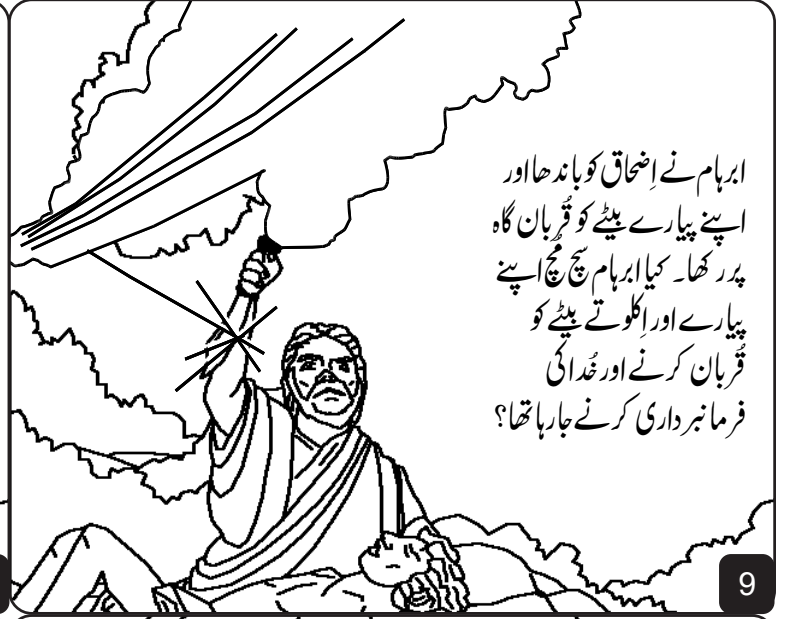 ابرہام نے اِضحاق کو باندھا اور
اپنے پیارے بیٹے کو قُربان گاہ
پر رکھا۔ کیا ابرہام سچ مُچ اپنے
پیارے اور اِکلوتے بیٹے کو
قُربان کرنے اور خُدا کی
فرمانبرداری کرنے جا رہا تھا؟
9